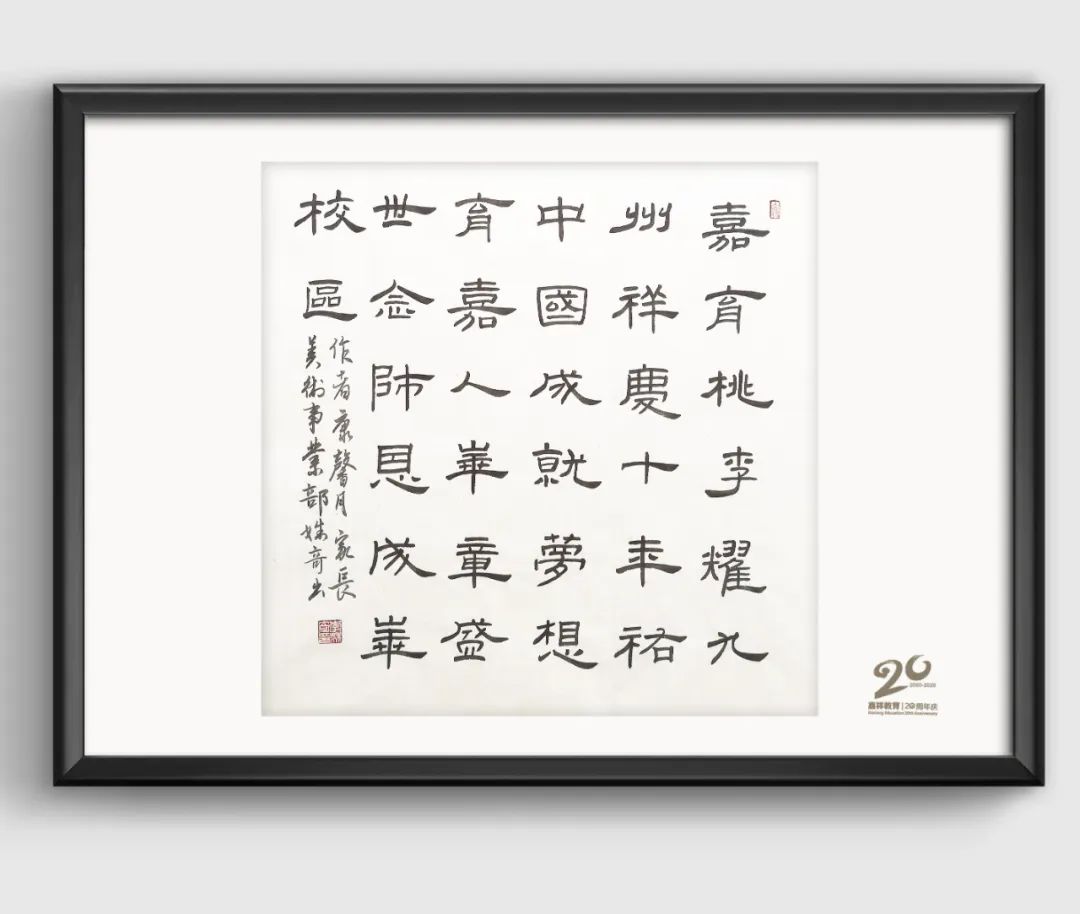 嘉育桃李耀九
州祥慶十年祐
中國成就夢想
育嘉人華章盛
世念師恩成華
校區
作者康馨月 家長
美術事業部
20
2000-2020
嘉祥教育|20周年庆
Jiaxiang Education 20th Anniversary